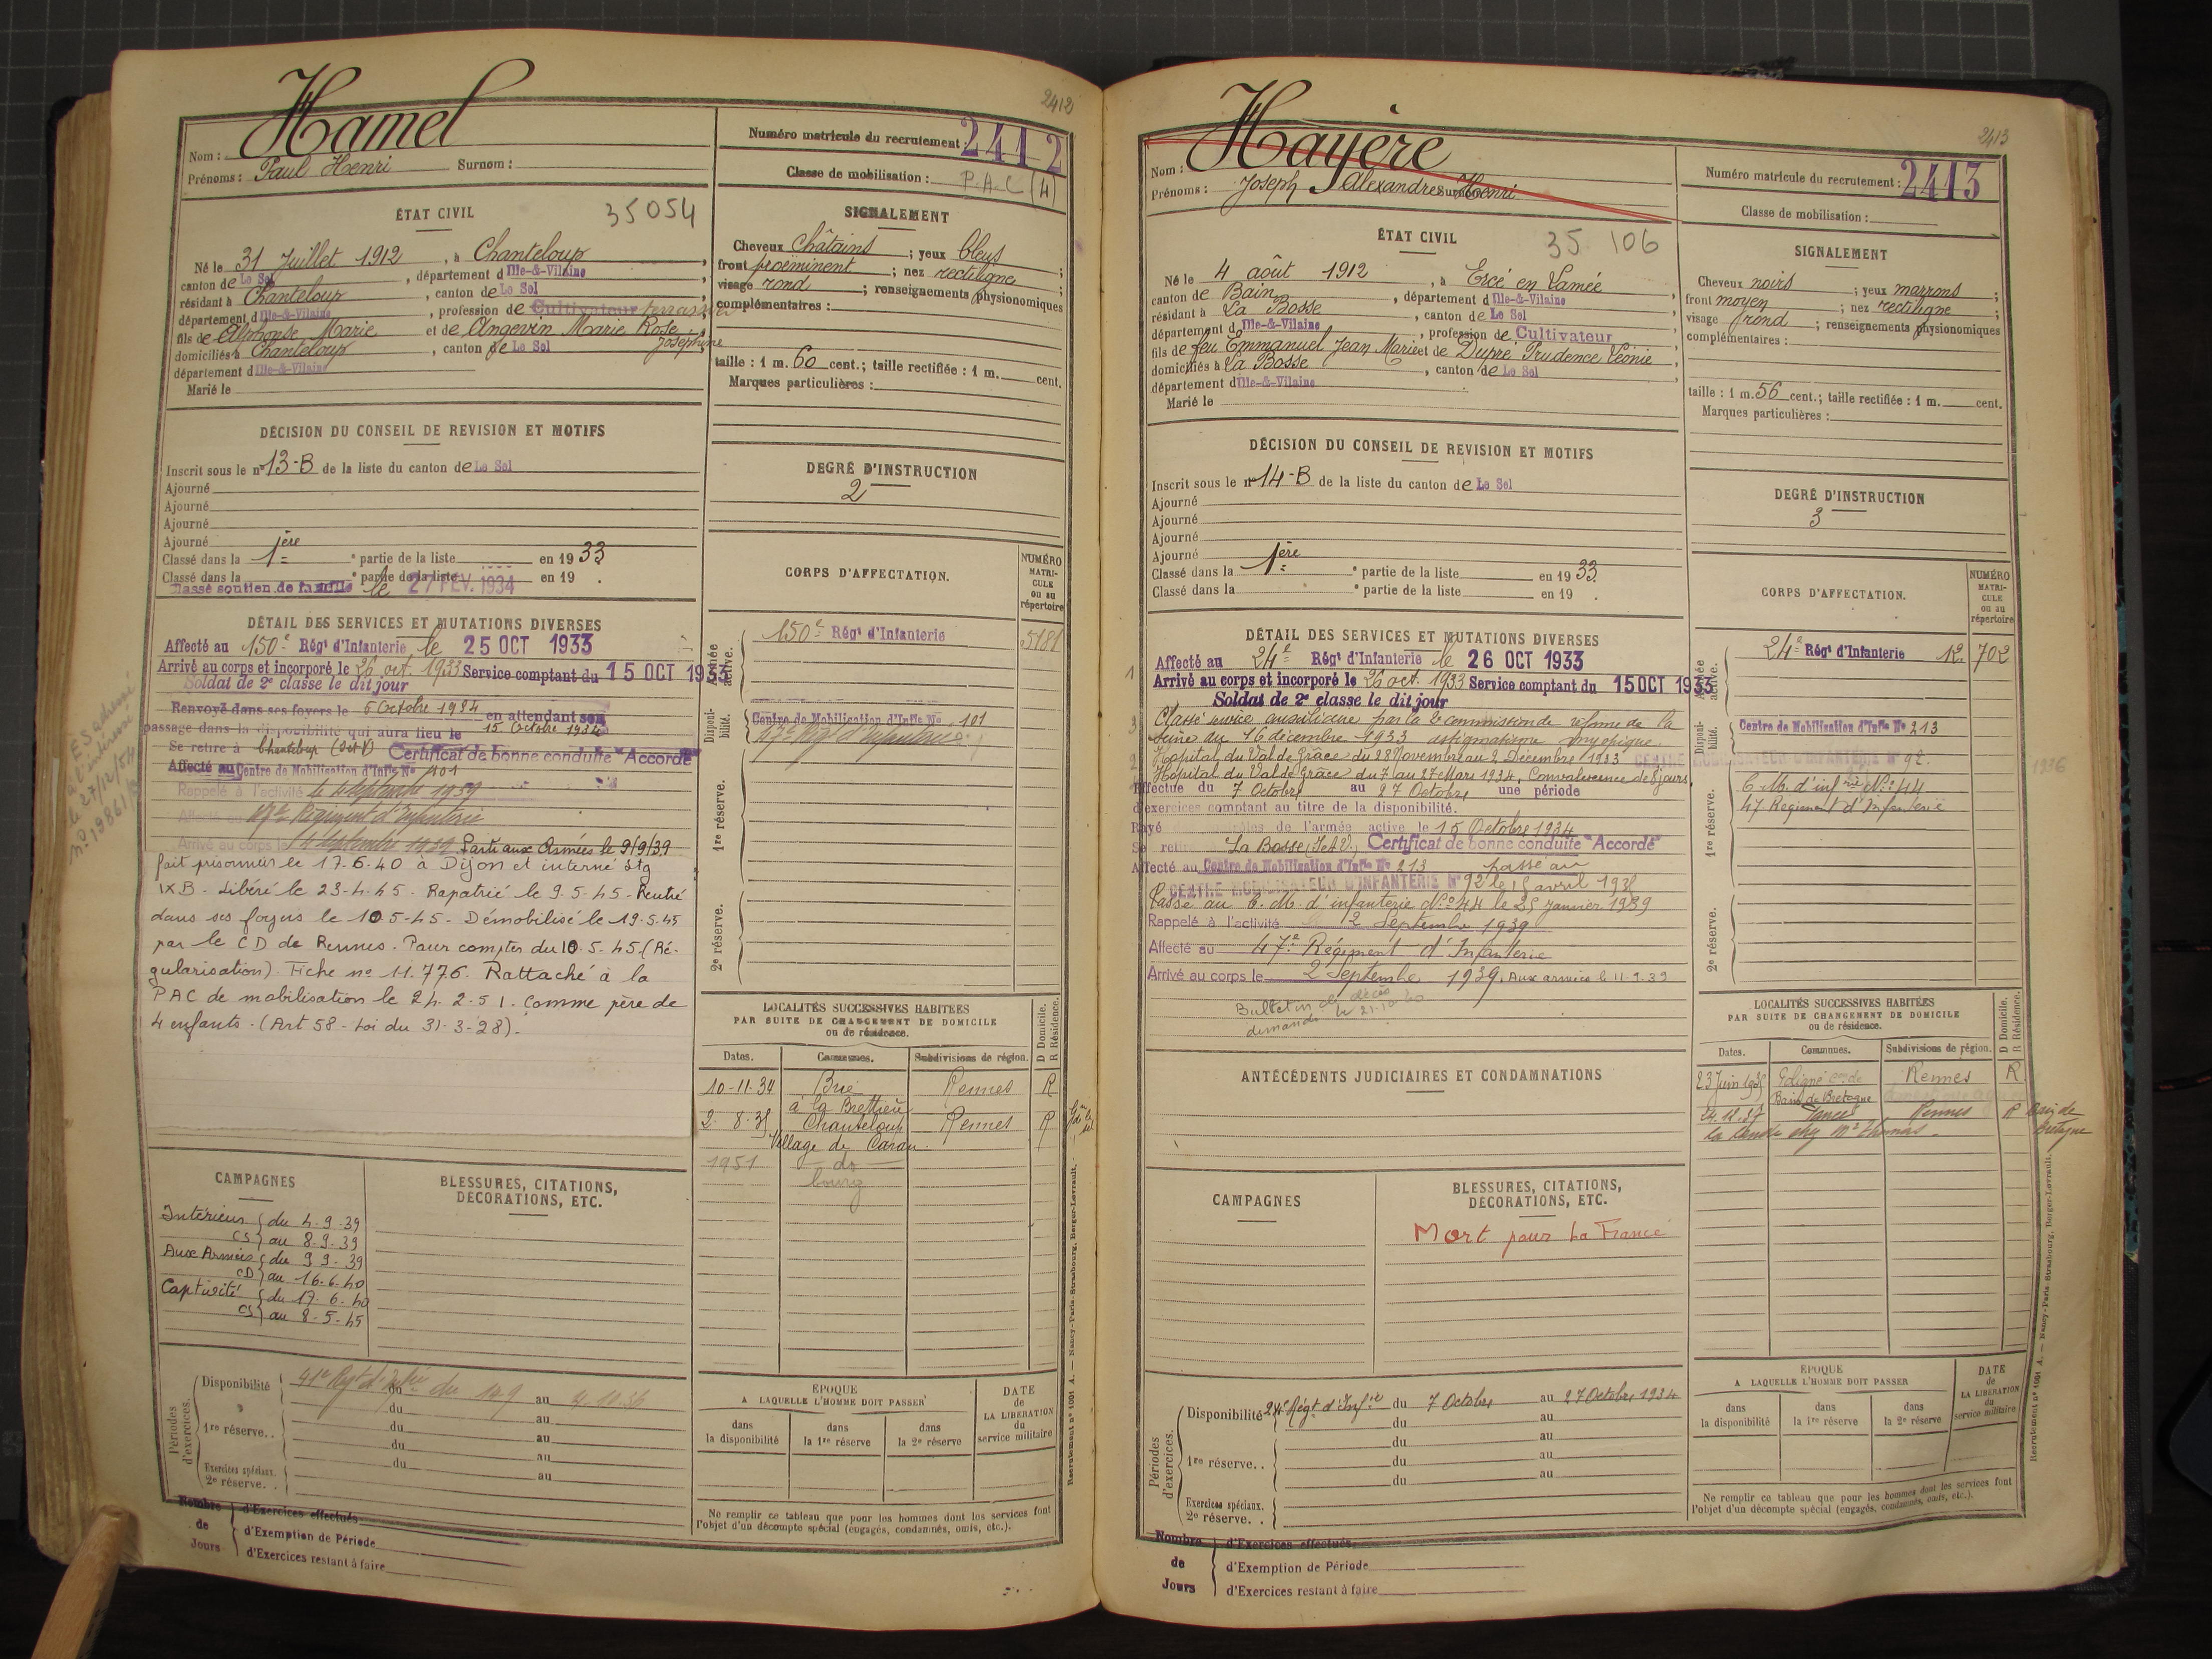 2412
Nom : Hamel
Prénoms : Paul Henri Surnom :
Numéro matricule du recrutement : 2412
Classe de mobilisation : P.A.C (4)
ÉTAT CIVIL
35054
Né le 31 Juillet 1912, à Chanteloup,
canton de Le Sel, département d Ille-&-Vilaine
résidant à Chanteloup, canton de Le Sel,
département d Ille-&-Vilaine, profession de Cultivateur terrassier
fils de Alphonse Marie et de Angevin Marie Rose Joséphine
domiciliés à Chanteloup, canton de Le Sel
département d Ille-&-Vilaine
Marié le
SIGNALEMENT
Cheveux Châtains ; yeux bleus ;
front proéminent ; nez rectiligne ;
visage rond ; renseignements physionomiques
complémentaires :
taille : 1 m. 60 cent.; taille rectifiée : 1 m. cent.
Marques particulières :
DÉCISION DU CONSEIL DE REVISION ET MOTIFS
Inscrit sous le n° 13-B de la liste du canton de Le Sel
Ajourné
Ajourné
Ajourné
Ajourné
Classé dans la 1ère partie de la liste en 1933
Classé dans la partie de la liste en 19 .
Classé soutien de famille le 27 FEV. 1934
DEGRÉ D'INSTRUCTION
2
DÉTAIL DES SERVICES ET MUTATIONS DIVERSES
Affecté au 150e Régt d'Infanterie le 25 OCT 1933
Arrivé au corps et incorporé le 26 oct. 1933 Service comptant du 15 OCT 1933
Soldat de 2e classe le dit jour
Renvoyé dans ses foyers le 6 Octobre 1934 en attendant son
passage dans la disponibilité qui aura lieu le 15 Octobre 1934
Se retire à Chanteloup (I et V) Certificat de bonne conduite "Accordé"
Affecté au Centre de Mobilisation d'Infie No 101
Rappelé à l'activité le 4 septembre 1939
Affecté au 47e Régiment d'Infanterie
Arrivé au corps le 4 septembre 1939 Parti aux Armées le 9/9/39
fait prisonnier le 17.6.40 à Dijon et interné Stg
IX B. Libéré le 23-4-45. Rapatrié le 9.5.45. Rentré
dans ses foyers le 10.5-45. Démobilisé le 19.5.45
par le CD de Rennes. Pour compter du 10.5.45 (Ré-
gularisation). Fiche no 11.776. Rattaché à la
PAC de mobilisation le 24.2.51. Comme père de
4 enfants. (Art 58 - Loi du 31-3-28).
E S adressé
à l'intéressé
le 27/12/54
CORPS D'AFFECTATION.
NUMÉRO MATRICULE ou au répertoire
Armée active.
150e Régt d'Infanterie 5181
Disponibilité.
Centre de Mobilisation d'Infie No 101
47e Régt d'Infanterie
1re réserve.
2e réserve.
LOCALITÉS SUCCESSIVES HABITÉES
PAR SUITE DE CHANGEMENT DE DOMICILE
ou de résidence.
Dates. Communes. Subdivisions de région. D Domicile. R Résidence.
10-11-34 Brie Rennes R
à la Brettière
2-8-35 Chanteloup Rennes R
Village de Caran
1951 do
bourg
CAMPAGNES
Intérieur CS du 4-9-39 au 8-9-39
Aux Armées CD du 9-9-39 au 16-6-40
Captivité CS du 17-6-40 au 8-5-45
BLESSURES, CITATIONS, DÉCORATIONS, ETC.
Périodes d'exercices.
Disponibilité 41e Regt d'Infie du 14 9 au 4.10.36
du au
1re réserve. . du au
du au
Exercices spéciaux. du au
2e réserve. .
ÉPOQUE
A LAQUELLE L'HOMME DOIT PASSER
dans la disponibilité dans la 1re réserve dans la 2e réserve
DATE de LA LIBÉRATION du service militaire
Ne remplir ce tableau que pour les hommes dont les services font
l'objet d'un décompte spécial (engagés, condamnés, omis, etc.).
Recrutement n° 1001 A. — Nancy-Paris-Strasbourg, Berger-Levrault.
Nombre de Jours
d'Exercices effectués
d'Exemption de Période
d'Exercices restant à faire
2413
Nom : Hayère
Prénoms : Joseph Alexandre Surnom : Henri
Numéro matricule du recrutement : 2413
Classe de mobilisation :
ÉTAT CIVIL
35 106
Né le 4 août 1912, à Ercé en Lamée
canton de Bain, département d Ille-&-Vilaine,
résidant à La Bosse, canton de Le Sel
département d Ille-&-Vilaine, profession de Cultivateur
fils de feu Emmanuel Jean Marie et de Dupré Prudence Léonie,
domiciliés à La Bosse, canton de Le Sel
département d Ille-&-Vilaine
Marié le
SIGNALEMENT
Cheveux noirs ; yeux marrons ;
front moyen ; nez rectiligne ;
visage rond ; renseignements physionomiques
complémentaires :
taille : 1 m. 56 cent.; taille rectifiée : 1 m. cent.
Marques particulières :
DÉCISION DU CONSEIL DE REVISION ET MOTIFS
Inscrit sous le n° 14-B de la liste du canton de Le Sel
Ajourné
Ajourné
Ajourné
Ajourné
Classé dans la 1ère partie de la liste en 1933
Classé dans la partie de la liste en 19 .
DEGRÉ D'INSTRUCTION
3
DÉTAIL DES SERVICES ET MUTATIONS DIVERSES
Affecté au 24e Régt d'Infanterie le 26 OCT 1933
Arrivé au corps et incorporé le 26 oct. 1933 Service comptant du 15 OCT 1933
Soldat de 2e classe le dit jour
Classé service auxiliaire par la 2e commission de réforme de la
Seine du 16 décembre 1933 astigmatisme myopique.
Hôpital du Val de Grâce du 28 Novembre au 2 Décembre 1933
Hôpital du Val de Grâce du 7 au 27 Mars 1934, Convalescence de 8 jours
Effectue du 7 Octobre au 27 Octobre une période
d'exercices comptant au titre de la disponibilité.
Rayé des contrôles de l'armée active le 15 Octobre 1934
Se retire La Bosse (I et V) Certificat de bonne conduite "Accordé"
Affecté au Centre de Mobilisation d'Infie No 213 passé au
CENTRE MOBILISATEUR D'INFANTERIE N° 92 le 15 avril 193
Passé au C. M. d'infanterie No 44 le 25 Janvier 1939
Rappelé à l'activité le 2 Septembre 1939
Affecté au 47e Régiment d'Infanterie
Arrivé au corps le 2 Septembre 1939. Aux armées le 11-9-39
Bulletin de décès
demandé le 21-10-40
CORPS D'AFFECTATION.
NUMÉRO MATRICULE ou au répertoire
Armée active.
24e Régt d'Infanterie 12. 702
Disponibilité.
Centre de Mobilisation d'Infie No 213
CENTRE MOBILISATEUR D'INFANTERIE N° 92.
1936
1re réserve.
C. M. d'infrie No 44
47 Régiment d'Infanterie
2e réserve.
ANTÉCÉDENTS JUDICIAIRES ET CONDAMNATIONS
LOCALITÉS SUCCESSIVES HABITÉES
PAR SUITE DE CHANGEMENT DE DOMICILE
ou de résidence.
Dates. Communes. Subdivisions de région. D Domicile. R Résidence.
23 Juin 1935 Poligné con de Rennes R
Bain de Bretagne
Rennes R Bain de Bretagne
CAMPAGNES
BLESSURES, CITATIONS, DÉCORATIONS, ETC.
Mort pour La France
Périodes d'exercices.
Disponibilité 24e Régt d'Infie du 7 Octobre au 27 Octobre 1934
du au
du au
1re réserve. . du au
du au
Exercices spéciaux.
2e réserve. .
ÉPOQUE
A LAQUELLE L'HOMME DOIT PASSER
dans la disponibilité dans la 1re réserve dans la 2e réserve
DATE de LA LIBÉRATION du service militaire
Ne remplir ce tableau que pour les hommes dont les services font
l'objet d'un décompte spécial (engagés, condamnés, omis, etc.).
Recrutement n° 1001 A. — Nancy-Paris-Strasbourg, Berger-Levrault.
Nombre de Jours
d'Exercices effectués
d'Exemption de Période
d'Exercices restant à faire